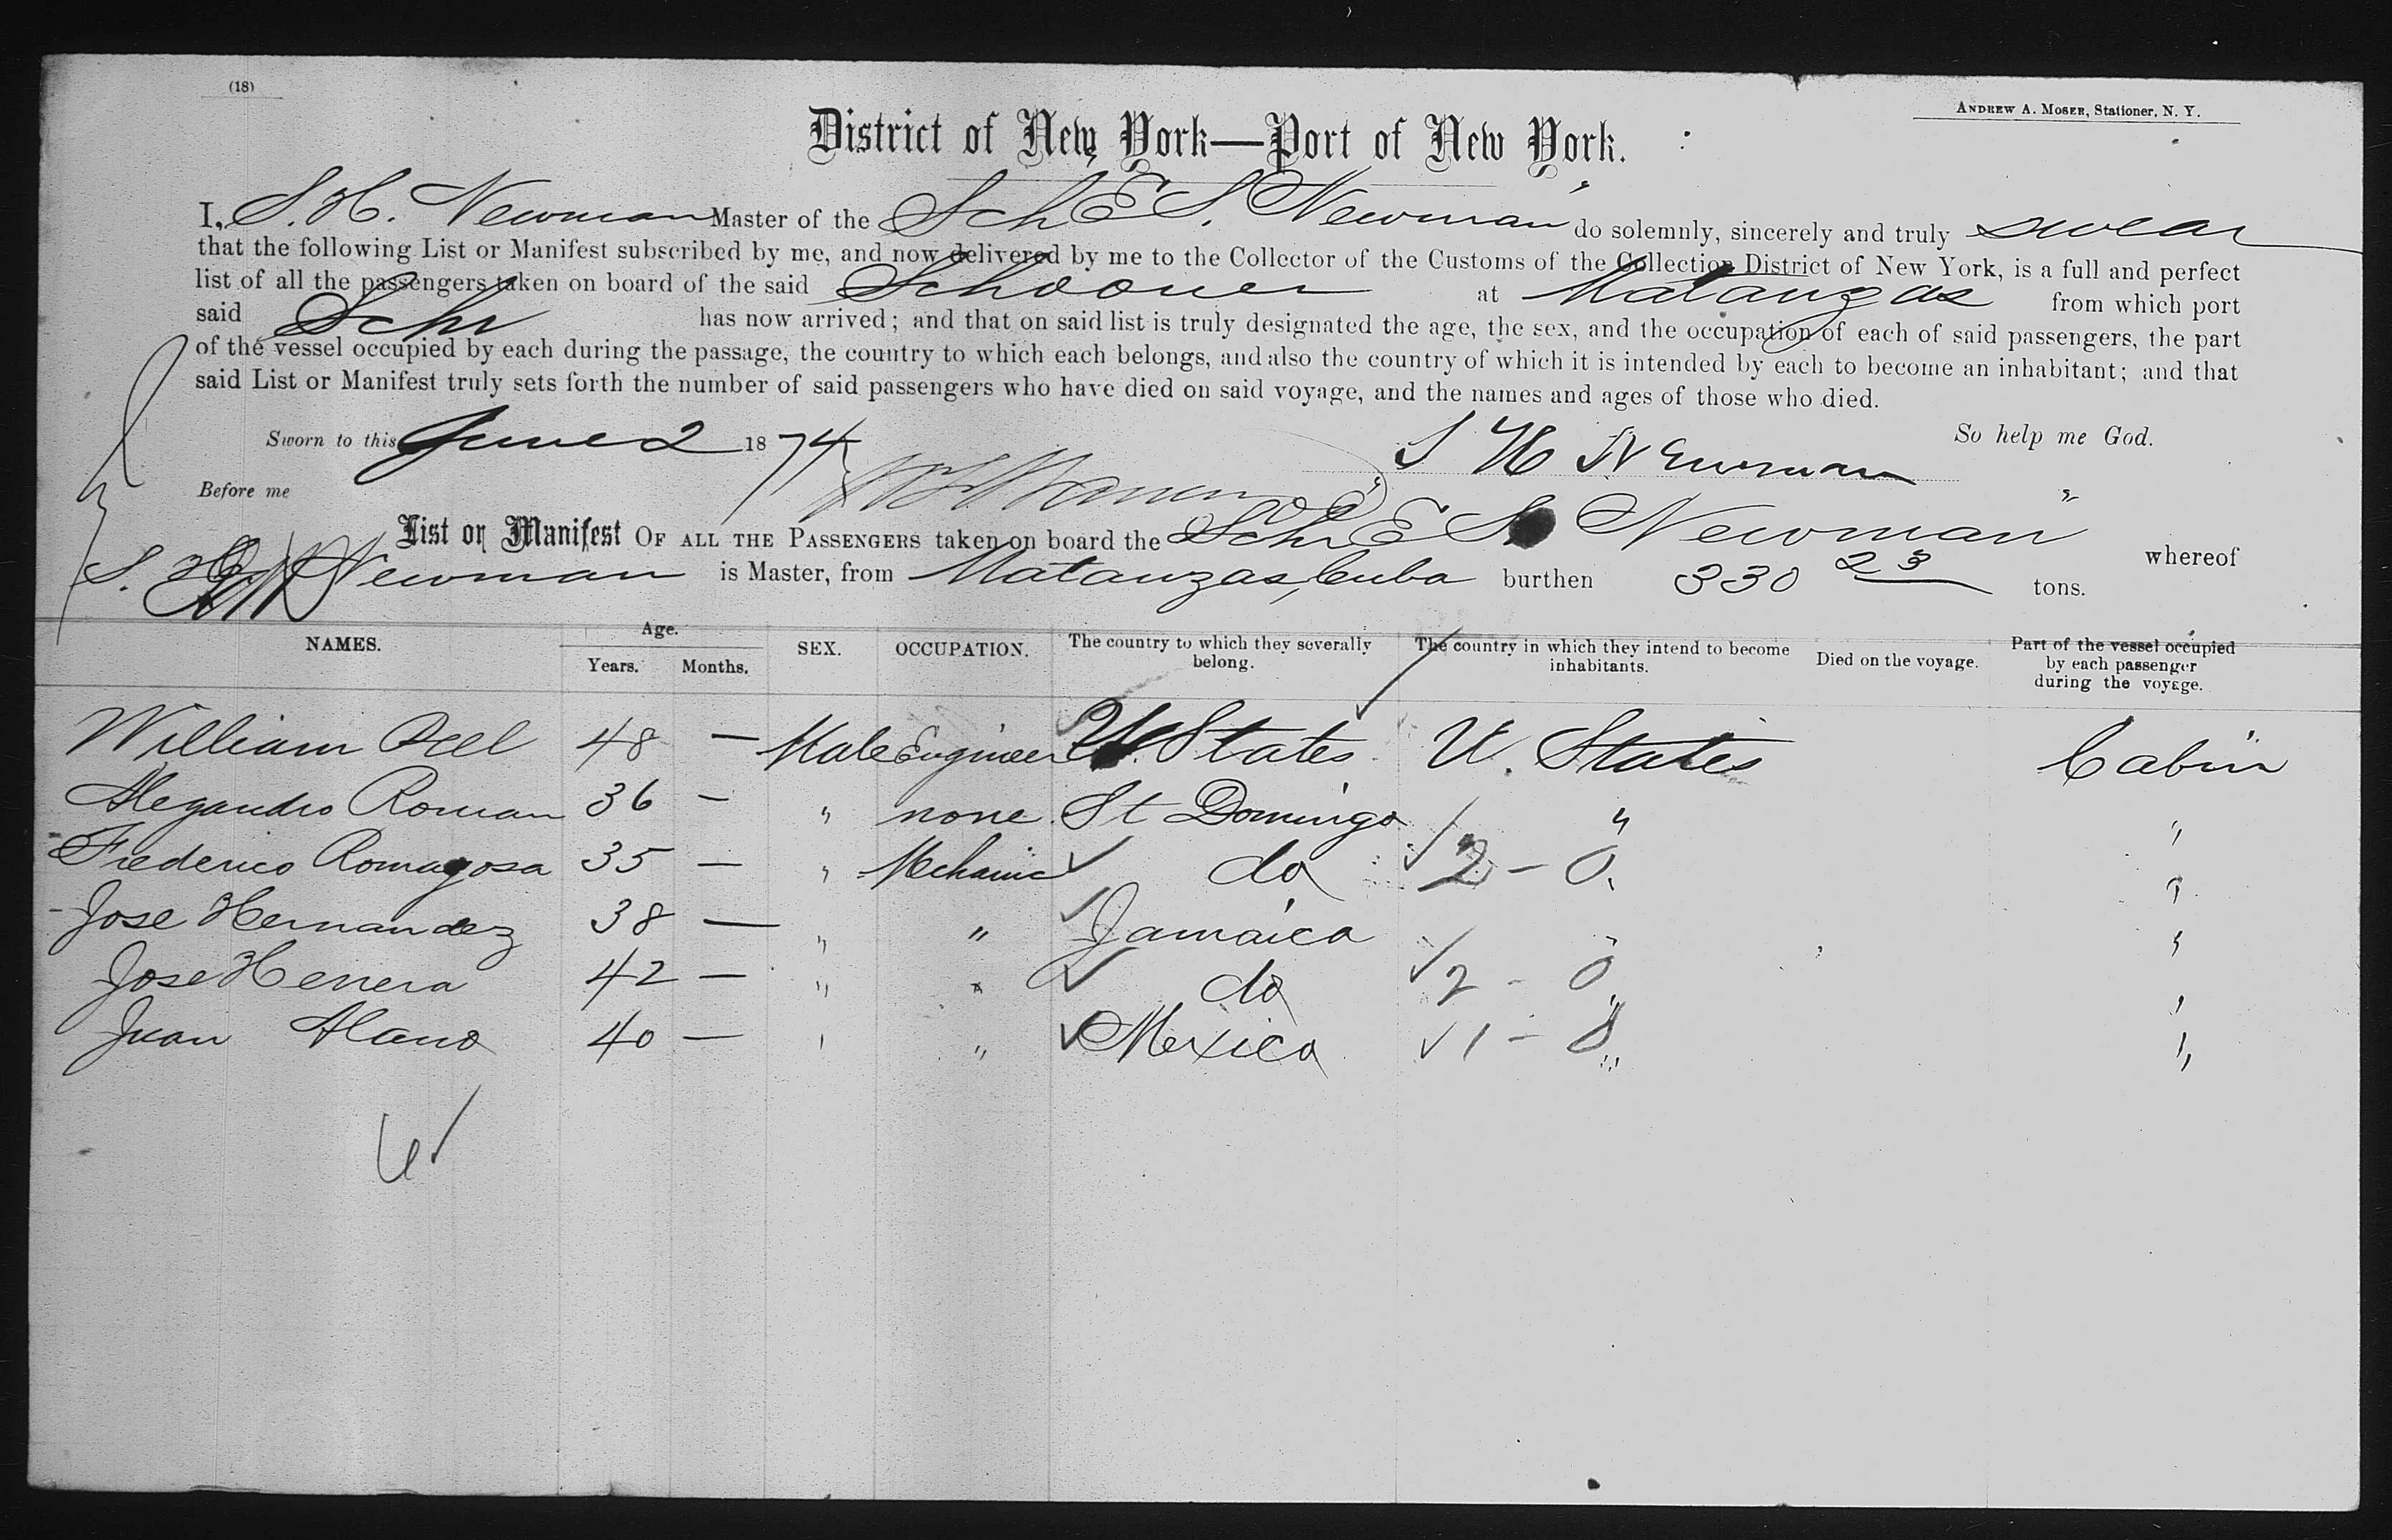 (18)
ANDREW A. MOSER, Stationer, N. Y.
District of New York—Port of New York.
I, S. H. Newman Master of the Sch E S. Newman do solemnly, sincerely and truly swear
that the following List or Manifest subscribed by me, and now delivered by me to the Collector of the Customs of the Collection District of New York, is a full and perfect
list of all the passengers taken on board of the said Schooner at Matanzas from which port
said Schr has now arrived; and that on said list is truly designated the age, the sex, and the occupation of each of said passengers, the part
of the vessel occupied by each during the passage, the country to which each belongs, and also the country of which it is intended by each to become an inhabitant; and that
said List or Manifest truly sets forth the number of said passengers who have died on said voyage, and the names and ages of those who died.
Sworn to this June 2 1874 So help me God.
S H Newman
Before me
List or Manifest OF ALL THE PASSENGERS taken on board the Schr E S Newman whereof
S. H. Newman is Master, from Matanzas, Cuba burthen 330 23 tons.
NAMES. Age. Years. Months. SEX. OCCUPATION. The country to which they severally belong. The country in which they intend to become inhabitants. Died on the voyage. Part of the vessel occupied by each passenger during the voyage.
William 48 — Male Engineer U. States U. States Cabin
Alegandro Roman 36 — " none St Domingo " "
Frederico Romagosa 35 — " Mechanic do 2 - 0 "
Jose Hernandez 38 — " " Jamaica " "
Jose Herrera 42 — " " do 2 - 0 " "
Juan 40 — " " Mexico 1 - 0 " "